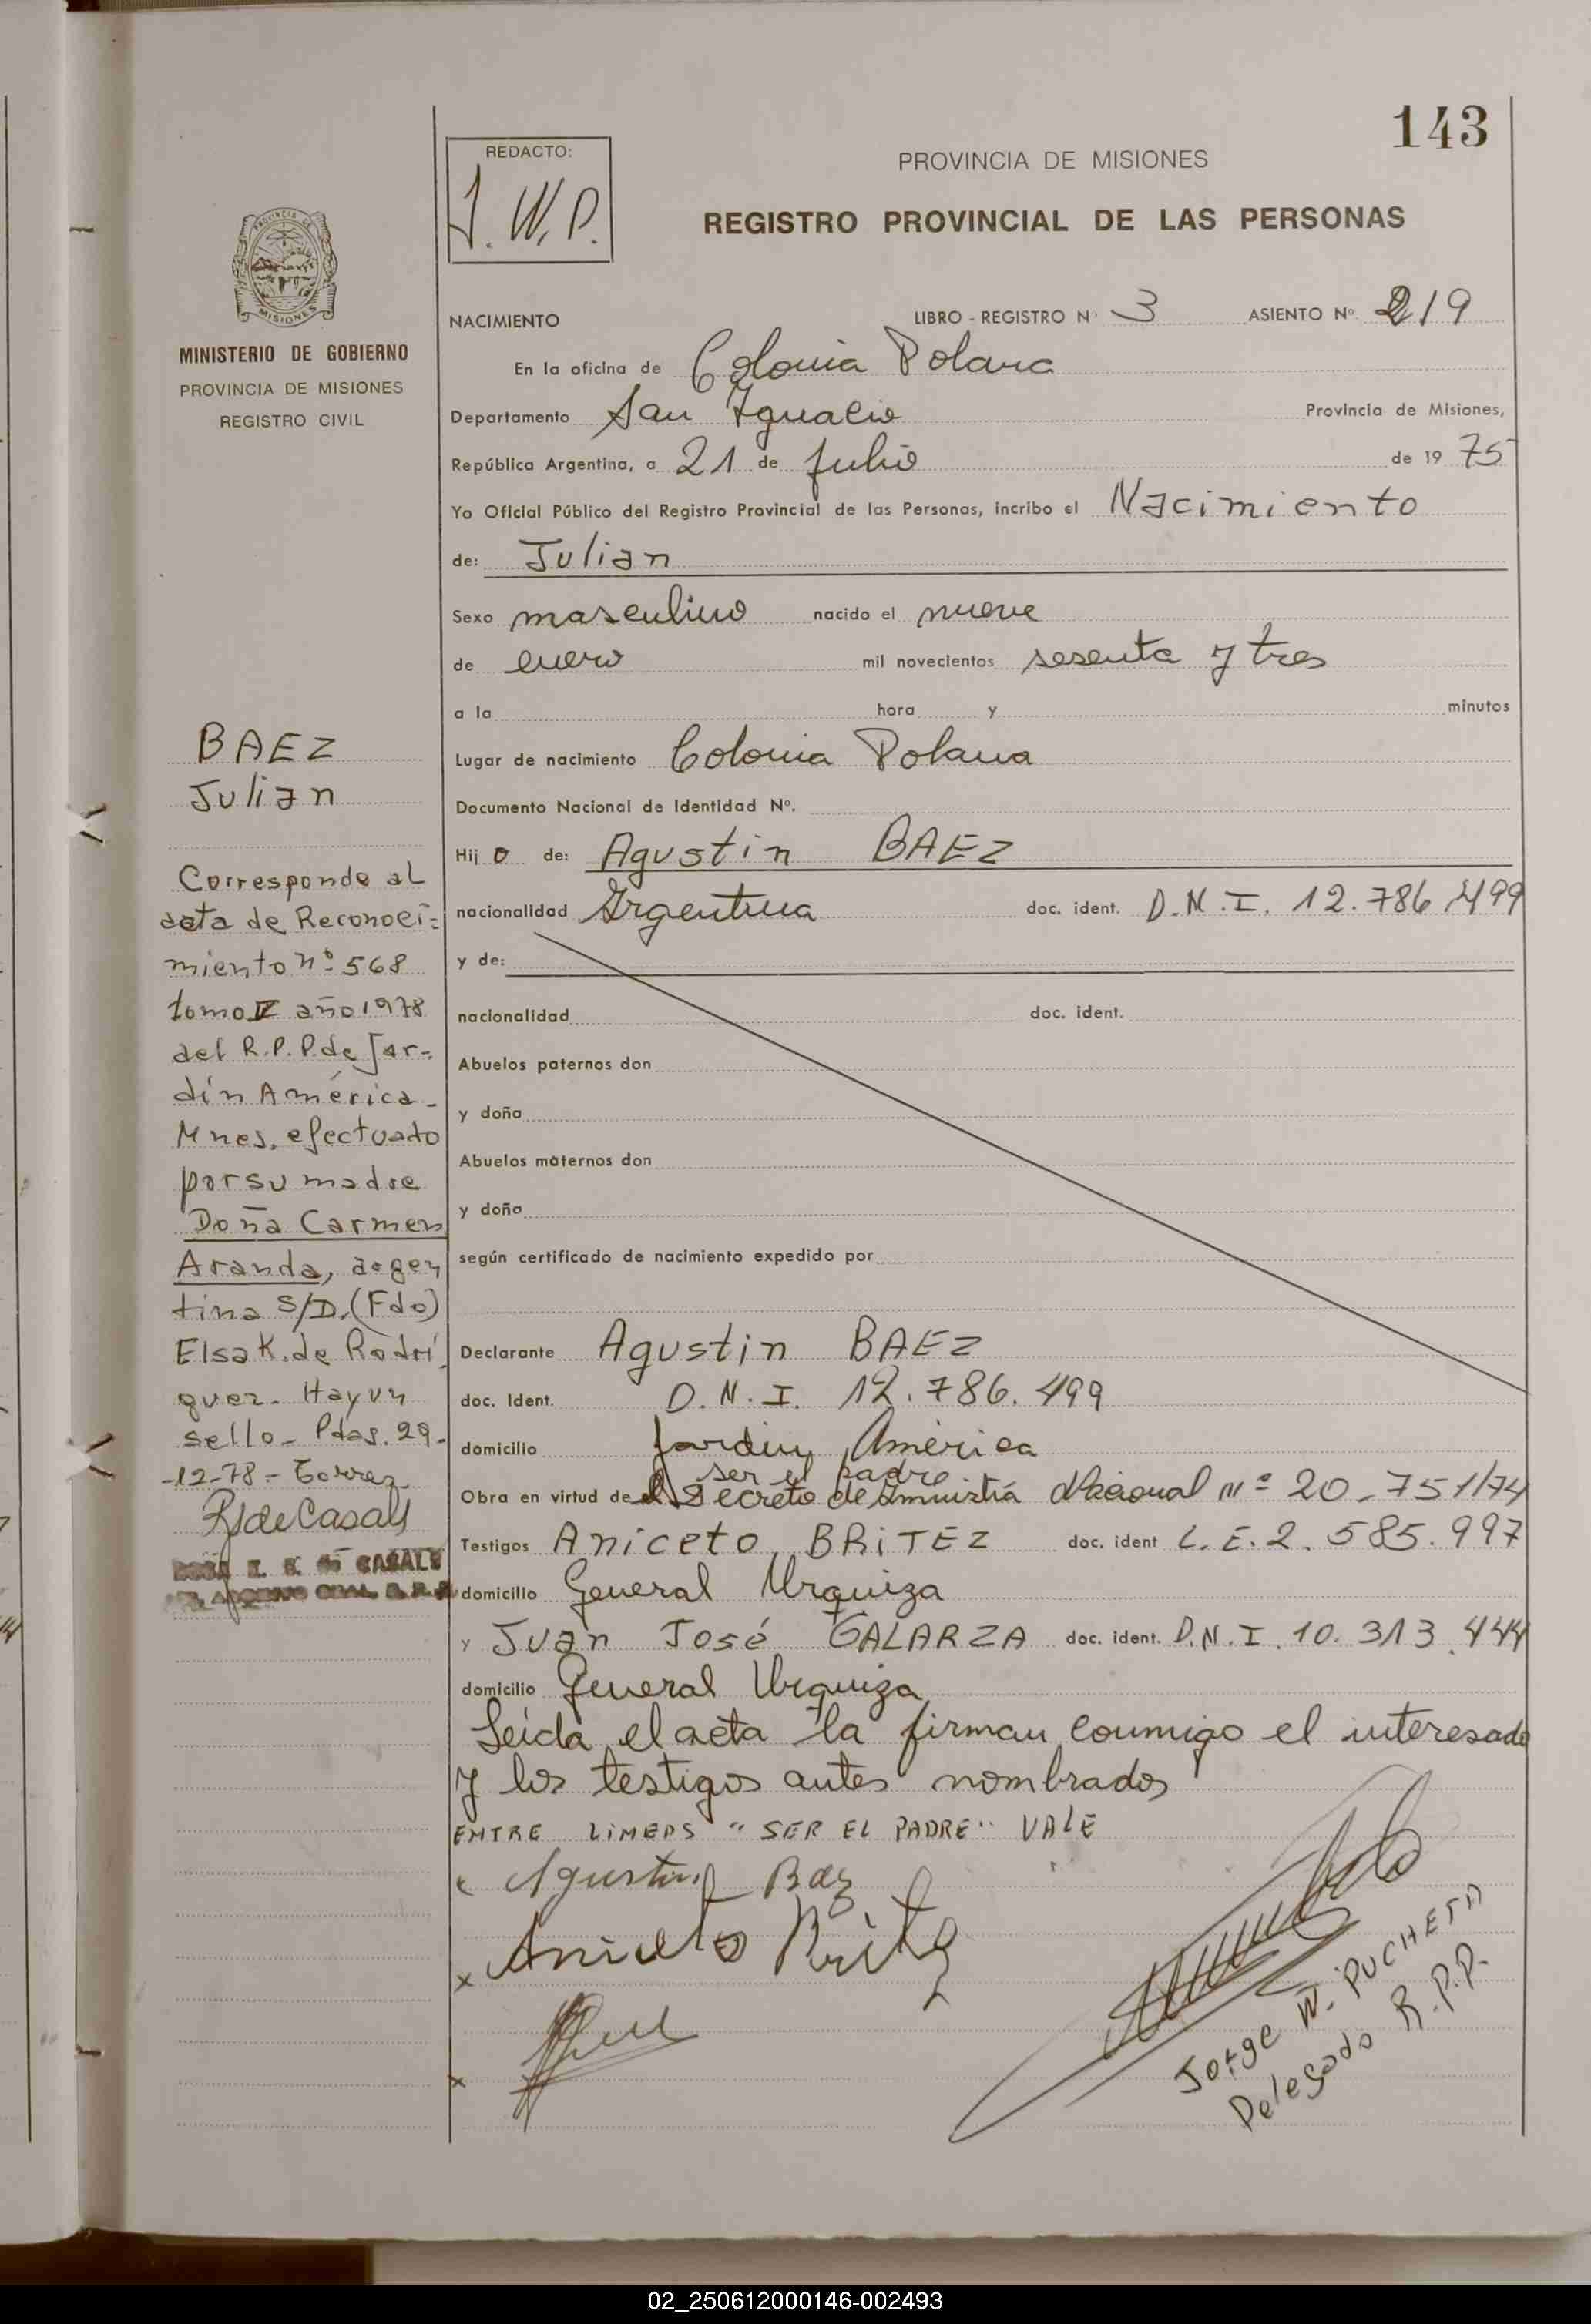 143
REDACTO:
J. W. P.
PROVINCIA DE MISIONES
REGISTRO PROVINCIAL DE LAS PERSONAS
MISIONES
MINISTERIO DE GOBIERNO
PROVINCIA DE MISIONES
REGISTRO CIVIL
NACIMIENTO LIBRO - REGISTRO N° 3 ASIENTO Nº 219
En la oficina de Colonia Polana
Departamento San Ignacio Provincia de Misiones,
República Argentina, a 21 de Julio de 19 75
Yo Oficial Público del Registro Provincial de las Personas, incribo el Nacimiento
de: Julian
Sexo masculino nacido el nueve
de enero mil novecientos sesenta y tres
a la hora y minutos
Lugar de nacimiento Colonia Polana
Documento Nacional de Identidad Nº.
Hij o de: Agustin BAEZ
nacionalidad Argentina doc. ident. D.N.I. 12.786.499
y de:
nacionalidad doc. ident.
Abuelos paternos don
y doña
Abuelos maternos don
y doña
según certificado de nacimiento expedido por
Declarante Agustin BAEZ
doc. Ident. D.N.I. 12.786.499
domicilio Jardin América
ser el padre
Obra en virtud de Decreto de Amnistía Nacional nº 20.751/74
Testigos Aniceto BRITEZ doc. ident L.E. 2.585.997
domicilio General Urquiza
y Juan José GALARZA doc. ident. D.N.I. 10.313.444
domicilio General Urquiza
Leída el acta la firman conmigo el interesado
y los testigos antes nombrados
ENTRE LINEAS "SER EL PADRE" VALE
x Agustin Baz
x Aniceto Britez
x
Jorge W. PUCHETA
Delegado R.P.P.
BAEZ
Julian
Corresponde al
acta de Reconoci=
miento nº 568
tomo IV año 1978
del R.P.P. de Jar-
dín América -
Mnes. efectuado
por su madre
Doña Carmen
Aranda, argen
tina S/D. (Fdo)
Elsa K. de Rodrí
guez - Hay un
sello - Pdas. 29-
-12-78 - Torrez
R J de Casals
ROSA E. DE CASALS
02_250612000146-002493